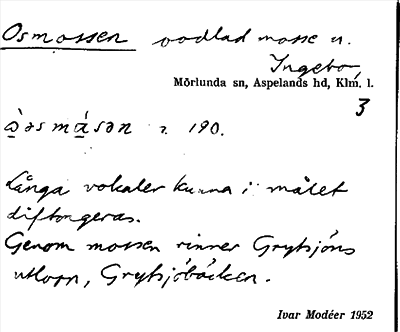 Osmossen oodlad mosse n.
Ingebo,
Mörlunda sn, Aspelands hd, Klm. l.
3
190.
Långa vokaler kunna i målet
diftongeras.
Genom mossen rinner Grytsjöns
utlopp, Grytsjöbäcken.
Ivar Modéer 1952